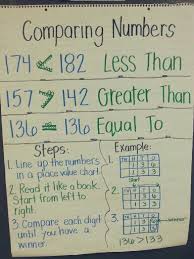 Comparing Numbers
174 < 182 Less Than
157 > 142 Greater Than
136 = 136 Equal To
Steps:
1. Line up the numbers
in a place value chart.
2. Read it like a book.
Start from left to
right.
3. Compare each digit
until you have a
winner.
Example:
1.
2.
3.
136 > 133